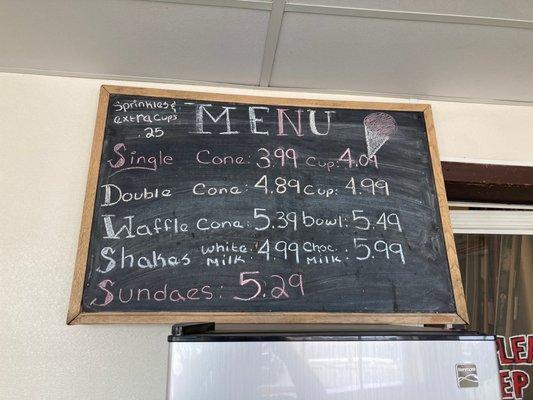 Sprinkles &
extra cups
.25
MENU
Single Cone: 3.99 Cup: 4.09
Double Cone: 4.89 Cup: 4.99
Waffle Cone: 5.39 bowl: 5.49
Shakes White Milk 4.99 Choc. Milk: 5.99
Sundaes: 5.29
Kenmore